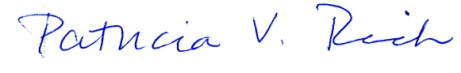 Patricia V. Rich